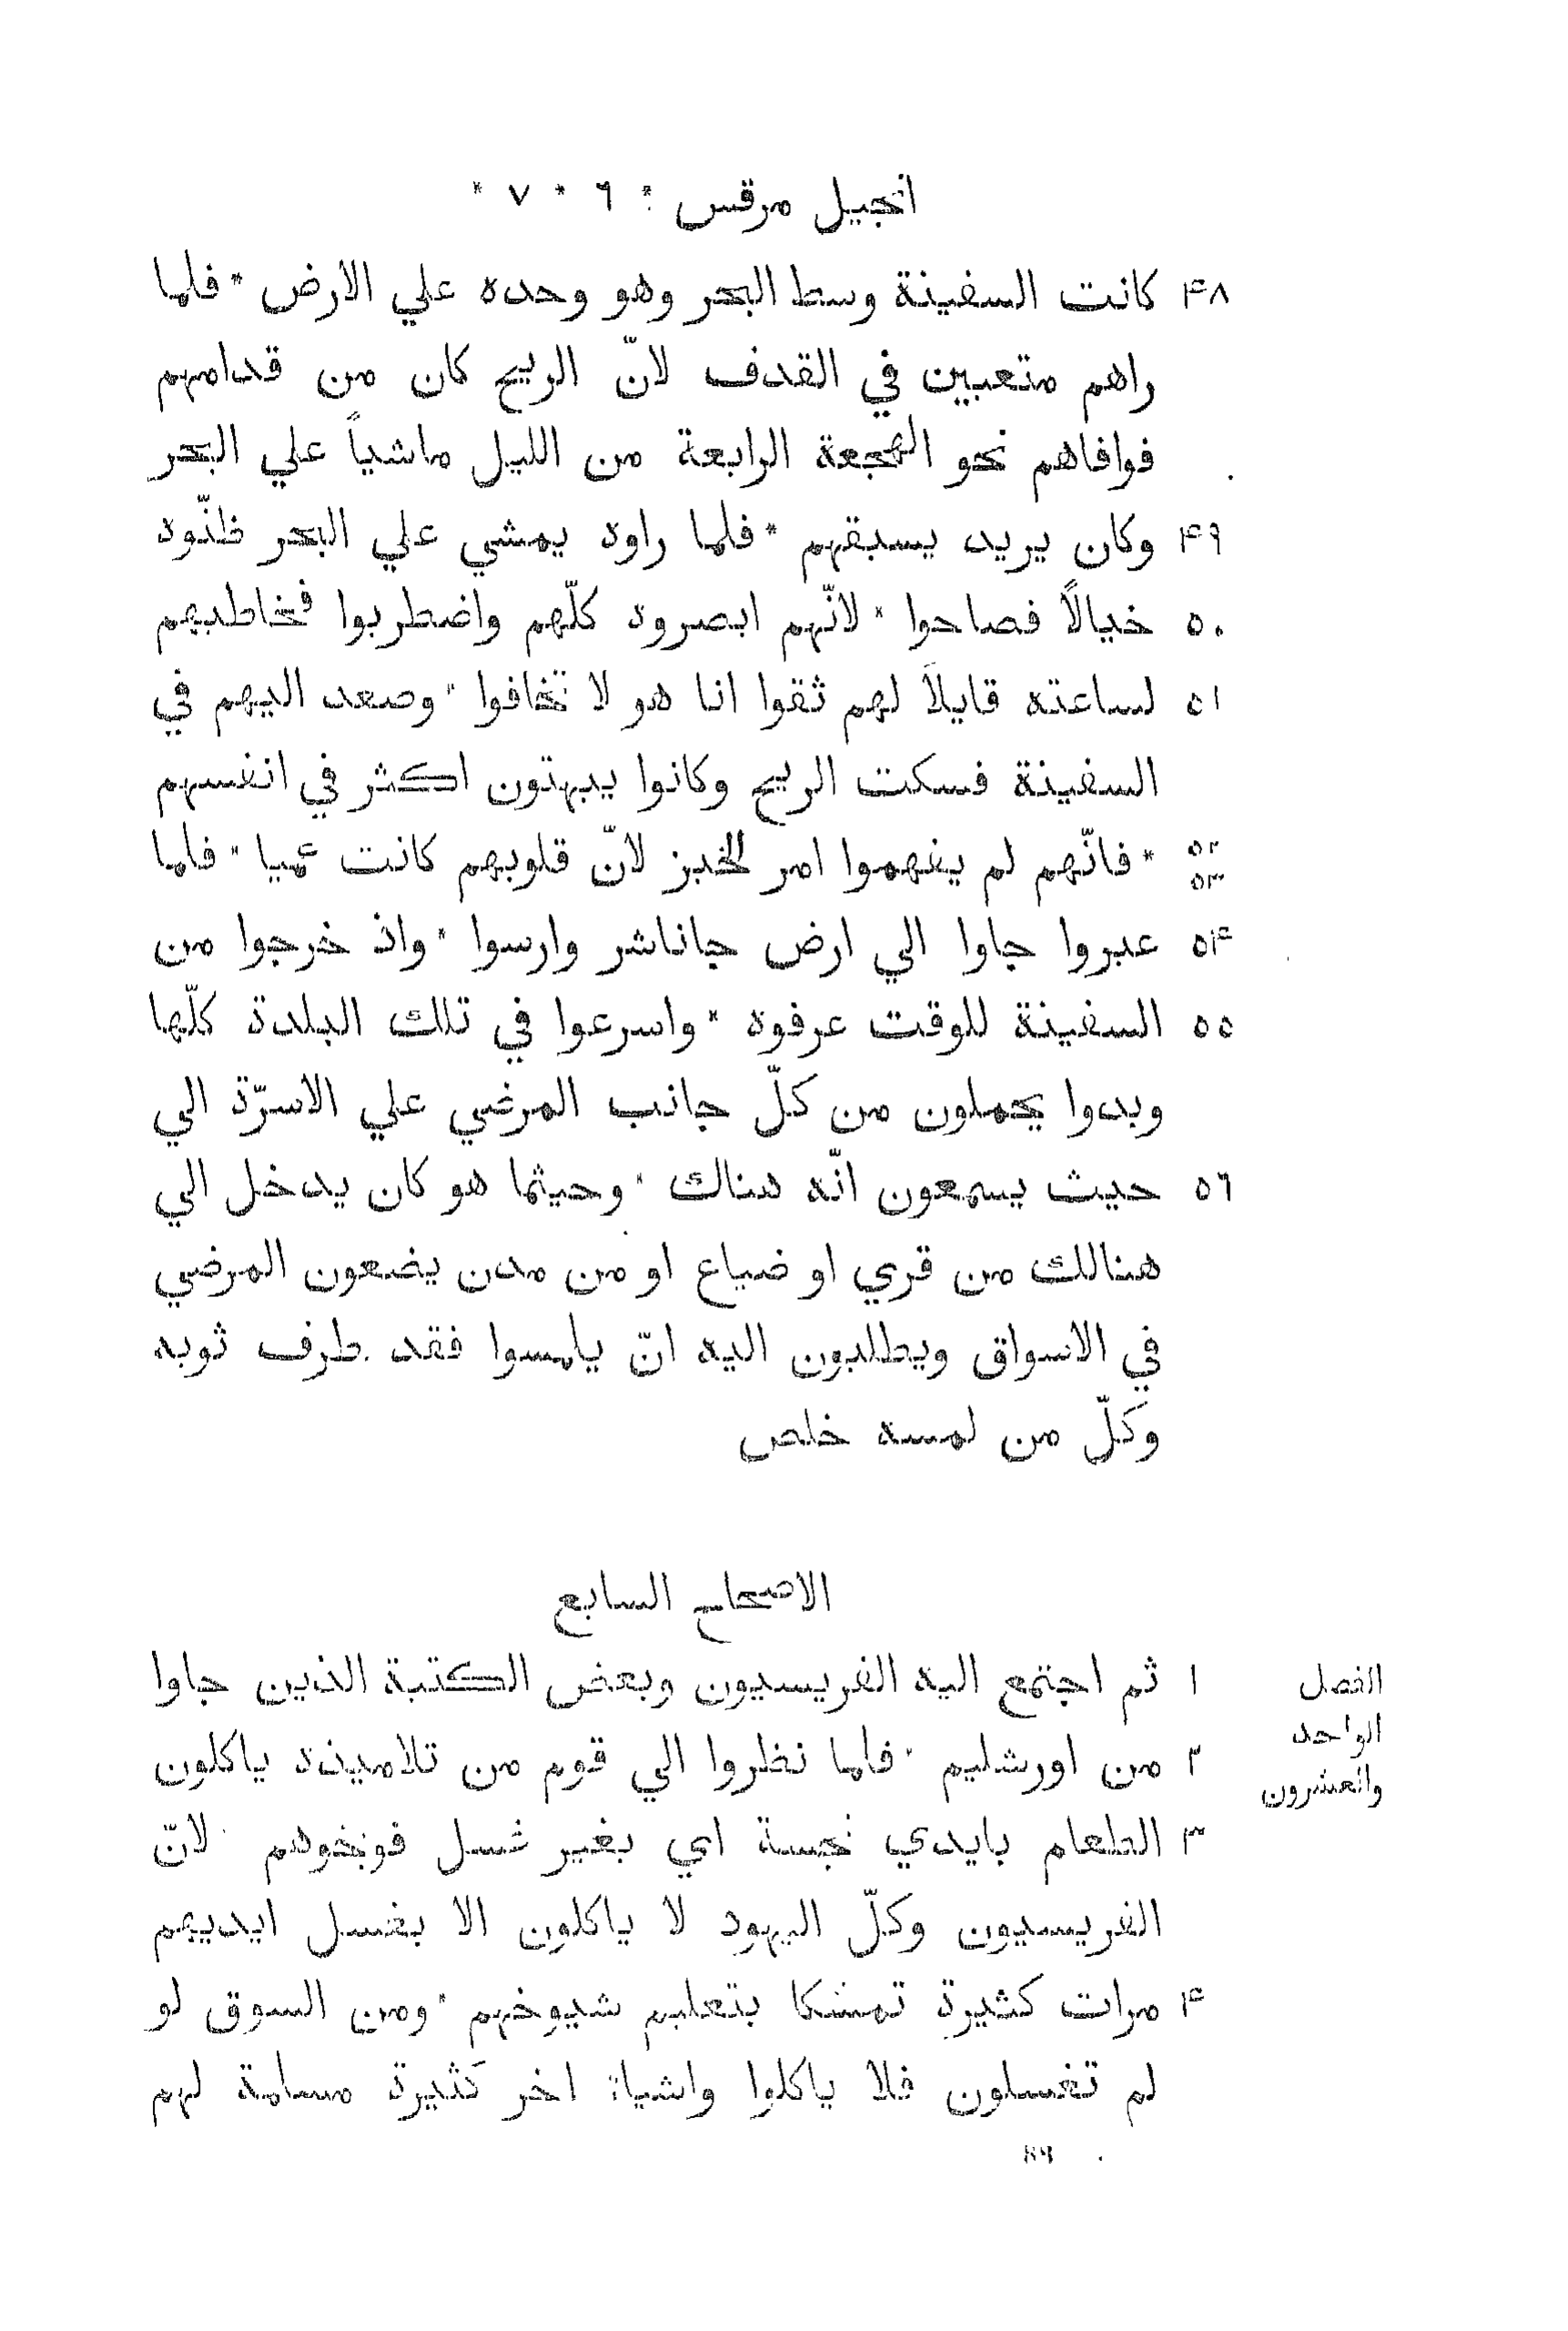 انجيل مرقس : ٦ * ٧ *
۴٨ كانت السفينة وسط البحر وهو وحده علي الارض * فلما
راهم متعبين في القدف لانّ الريح كان من قدامهم
فوافاهم نحو الهجعة الرابعة من الليل ماشياً علي البحر
۴٩ وكان يريد يسبقهم * فلما راوه يمشي علي البحر ظنّوه
٥٠ خيالًا فصاحوا * لانّهم ابصروه كلّهم واضطربوا فخاطبهم
٥١ لساعته قايلاً لهم ثقوا انا هو لا تخافوا * وصعد اليهم في
السفينة فسكت الريح وكانوا يبهتون اكثر في انفسهم
٥٢ ٥٣ * فانّهم لم يفهموا امر الخبز لانّ قلوبهم كانت عميا * فلما
٥۴ عبروا جاوا الي ارض جاناشر وارسوا * واذ خرجوا من
٥٥ السفينة للوقت عرفوه * واسرعوا في تلك البلدة كلّها
وبدوا يحملون من كلّ جانب المرضي علي الاسرّة الي
٥٦ حيث يسمعون انّه هناك * وحيثما هو كان يدخل الي
هنالك من قري او ضياع او من مدن يضعون المرضي
في الاسواق ويطلبون اليه انّ يلمسوا فقد طرف ثوبه
وكلّ من لمسه خلص
الاصحاح السابع
١ ثم اجتمع اليه الفريسيون وبعض الكتبة الذين جاوا
٢ من اورشليم * فلما نظروا الي قوم من تلاميذه ياكلون
٣ الطعام بايدي نجسة اي بغير غسل فوبخوهم * لانّ
الفريسيون وكلّ اليهود لا ياكلون الا بغسل ايديهم
۴ مرات كثيرة تمسكا بتعليم شيوخهم * ومن السوق لو
لم تغسلون فلا ياكلوا واشياء اخر كثيرة مسلمة لهم
الفصل
الواحد
والعشرون